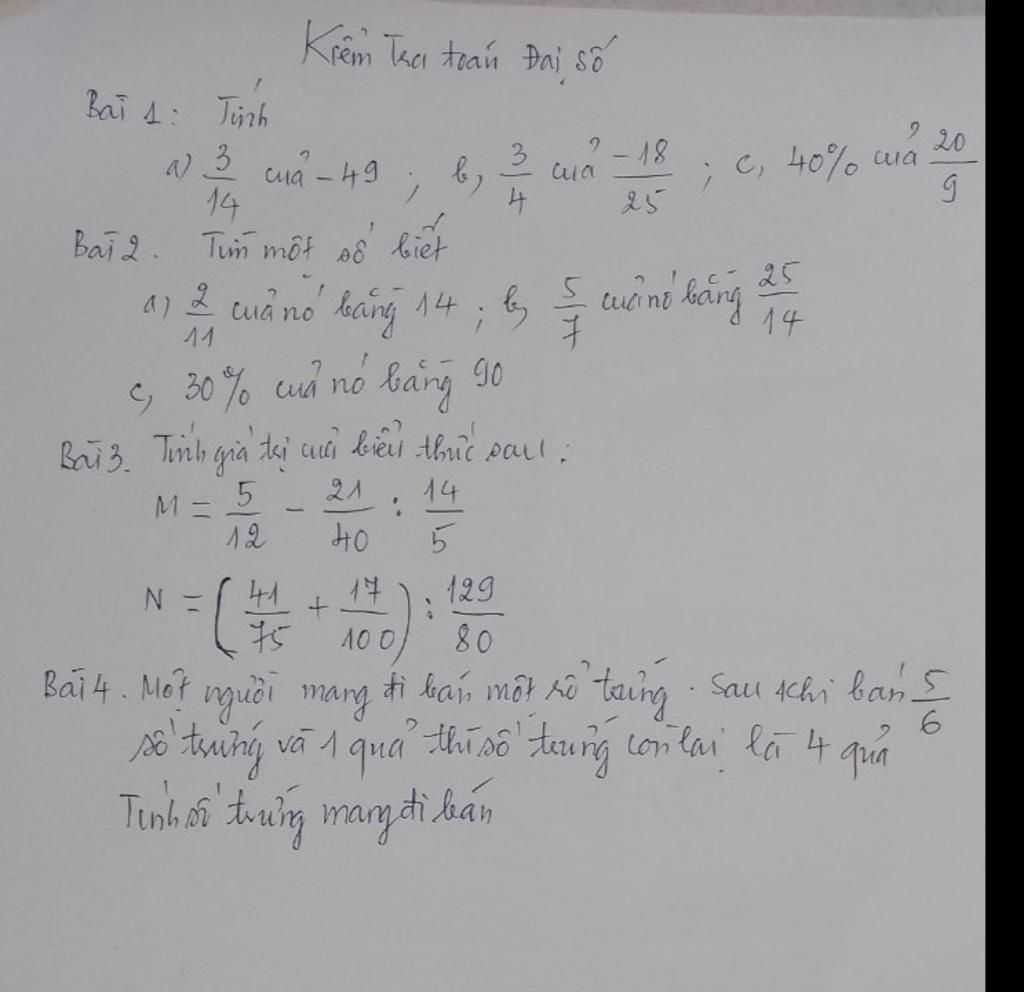 Kiểm tra toán Đại số
Bài 1: Tính
a) 3/14 của -49 ; b, 3/4 của -18/25 ; c, 40% của 20/9
Bài 2. Tìm một số biết
a) 2/11 của nó bằng 14 ; b, 5/7 của nó bằng 25/14
c, 30% của nó bằng 90
Bài 3. Tính giá trị của biểu thức sau:
M = 5/12 - 21/40 : 14/5
N = (41/75 + 17/100) : 129/80
Bài 4. Một người mang đi bán một số trứng. Sau khi bán 5/6
số trứng và 1 quả thì số trứng còn lại là 4 quả
Tính số trứng mang đi bán